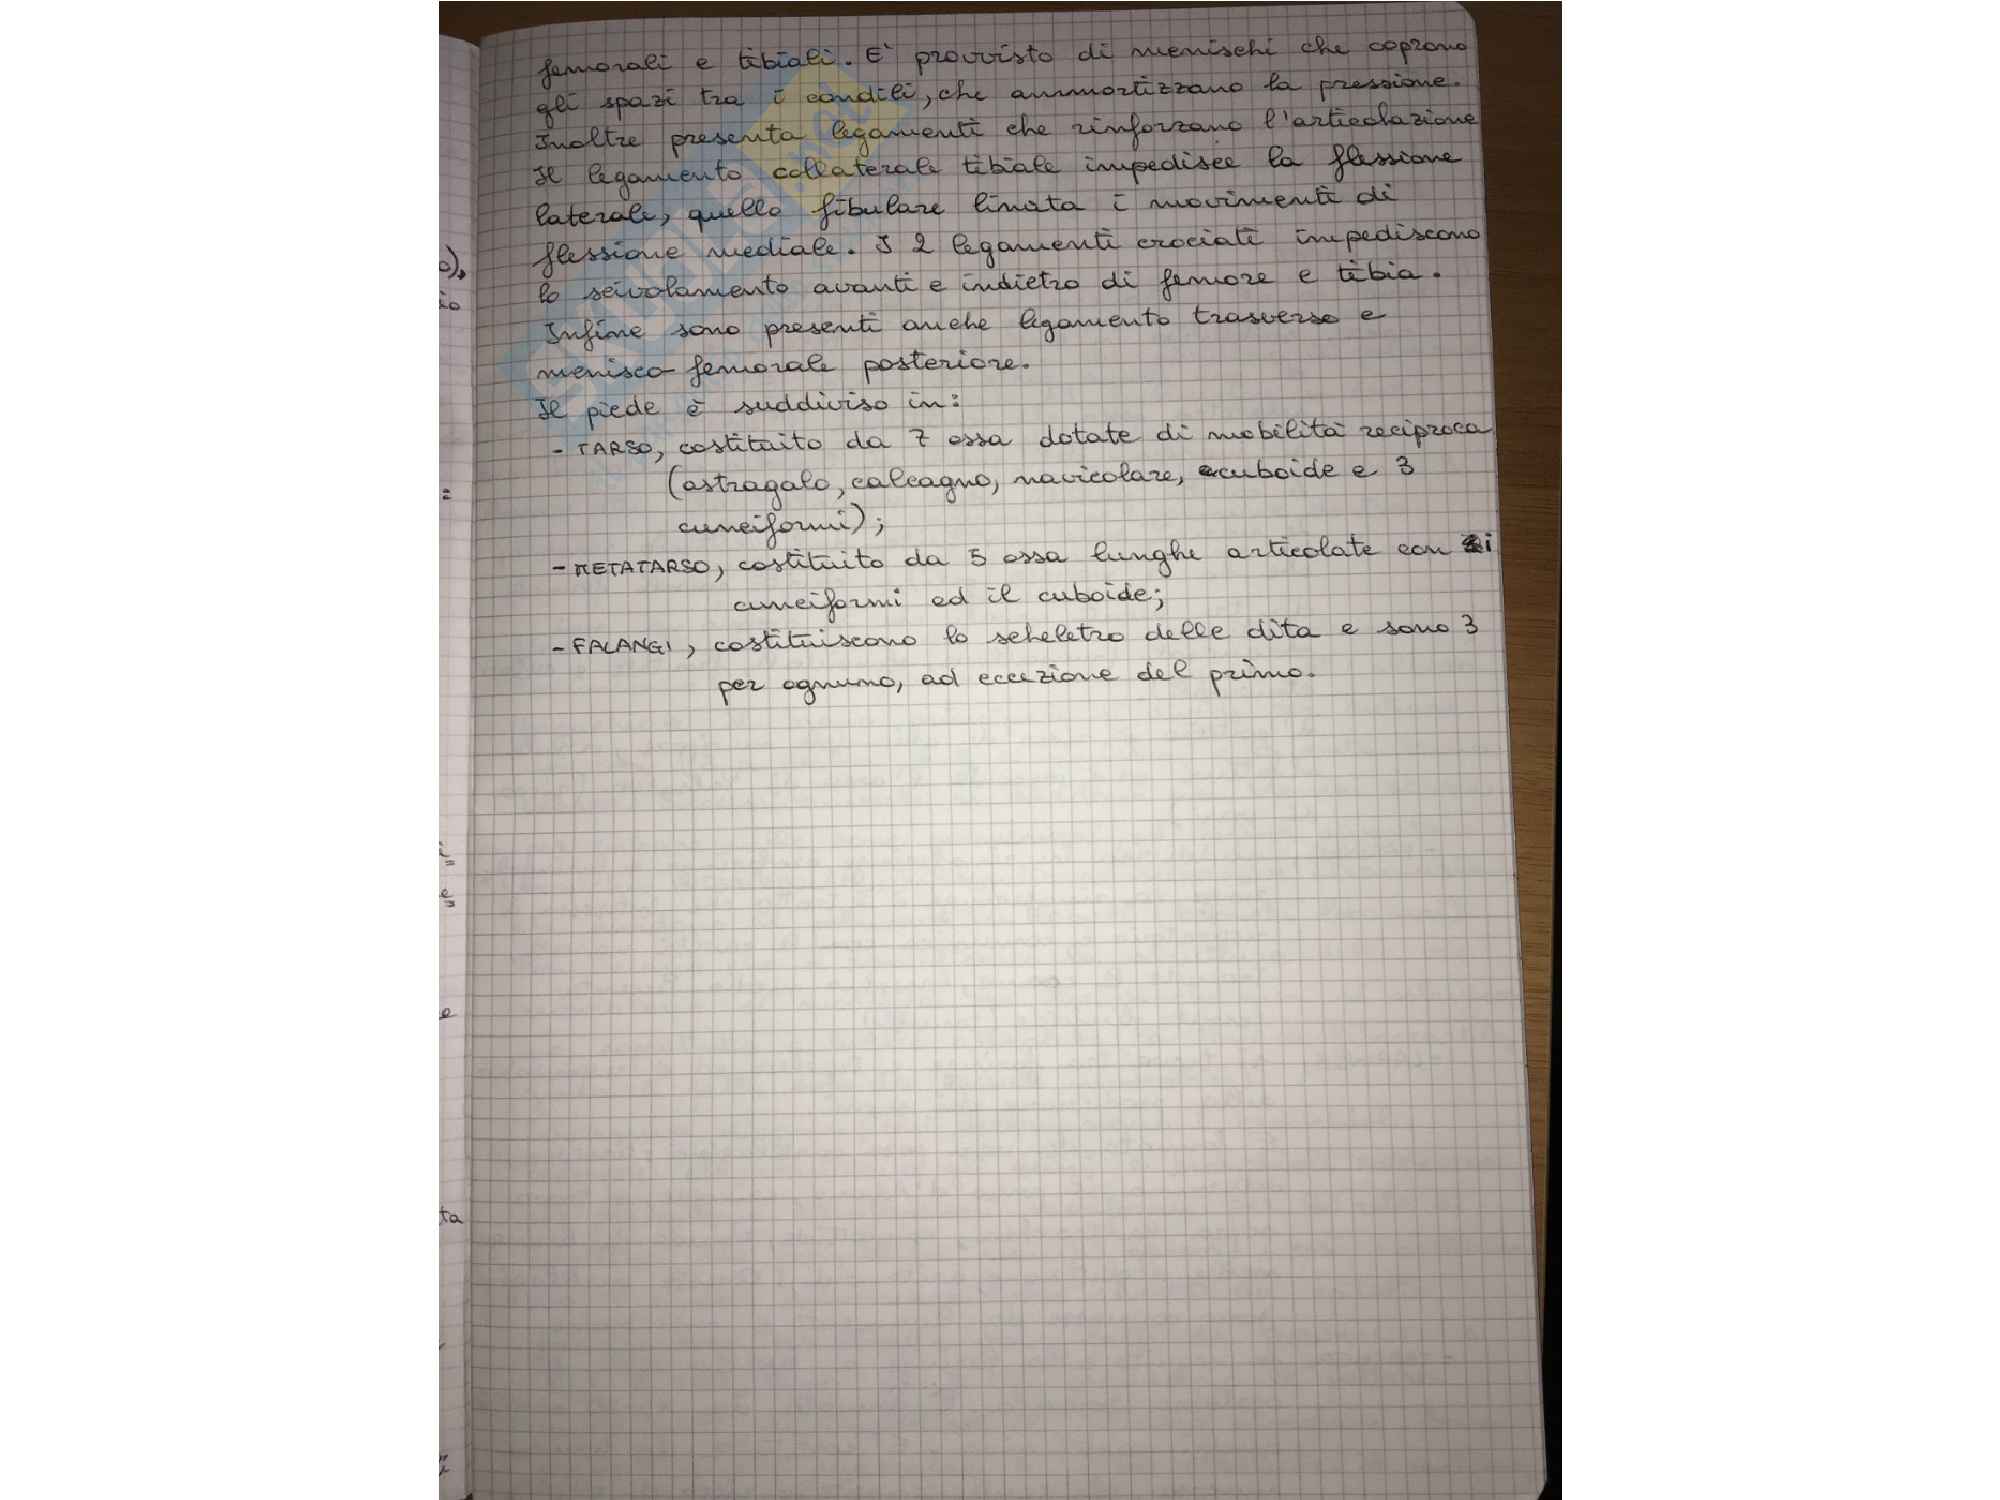 femorali e tibiali. E' provvisto di menischi che coprono
gli spazi tra i condili, che ammortizzano la pressione.
Inoltre presenta legamenti che rinforzano l'articolazione
Il legamento collaterale tibiale impedisce la flessione
laterale, quello fibulare limita i movimenti di
flessione mediale. I 2 legamenti crociati impediscono
lo scivolamento avanti e indietro di femore e tibia.
Infine sono presenti anche legamento trasverso e
menisco-femorale posteriore.
Il piede è suddiviso in:
- TARSO, costituito da 7 ossa dotate di mobilità reciproca
(astragalo, calcagno, navicolare, cuboide e 3
cuneiformi);
- METATARSO, costituito da 5 ossa lunghe articolate con i
cuneiformi ed il cuboide;
- FALANGI, costituiscono lo scheletro delle dita e sono 3
per ognuno, ad eccezione del primo.